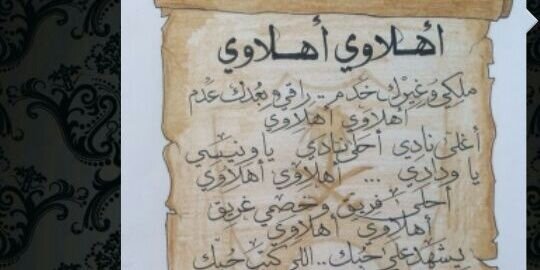 أهلاوي أهلاوي
ملكي وغيرك خدم .. راقي وبعدك عدم
أهلاوي أهلاوي
أغلى نادي أحلى نادي يا ونيسي
يا ودادي ... أهلاوي أهلاوي
أحلى فريق خصمي غريق
أهلاوي أهلاوي
يشهد على حبك .. اللي كتب حبك